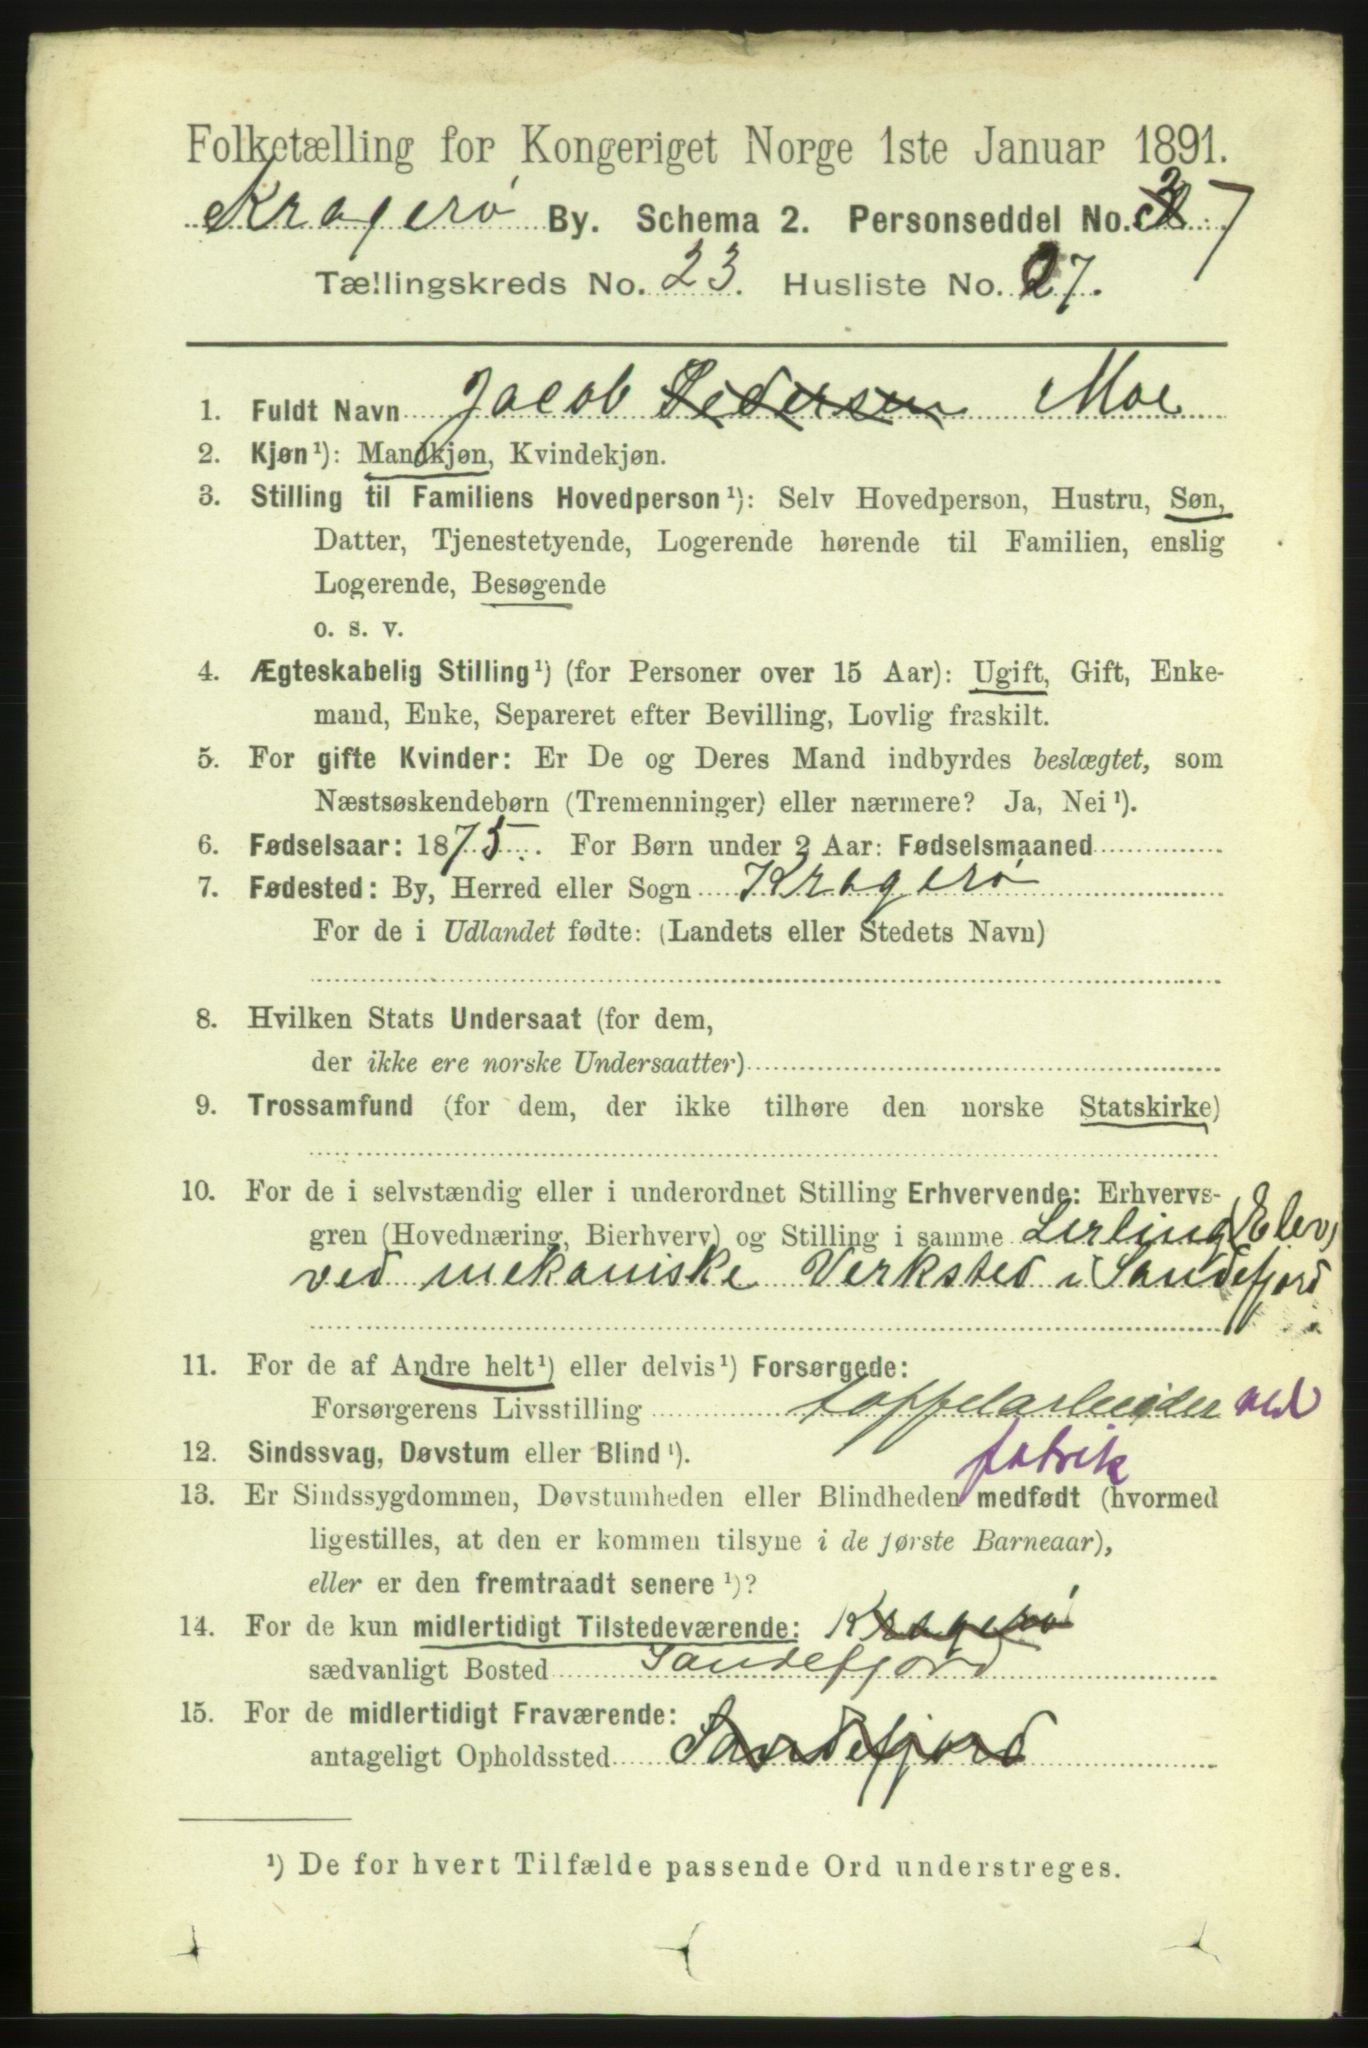 Folketælling for Kongeriget Norge 1ste Januar 1891.
Kragerø By. Schema 2. Personseddel No. 7
Tællingskreds No. 23. Husliste No. 27.
1. Fuldt Navn Jacob Pedersen Moe
2. Kjøn¹): Mandkjøn, Kvindekjøn.
3. Stilling til Familiens Hovedperson¹): Selv Hovedperson, Hustru, Søn,
Datter, Tjenestetyende, Logerende hørende til Familien, enslig
Logerende, Besøgende
o. s. v.
4. Ægteskabelig Stilling¹) (for Personer over 15 Aar): Ugift, Gift, Enke-
mand, Enke, Separeret efter Bevilling, Lovlig fraskilt.
5. For gifte Kvinder: Er De og Deres Mand indbyrdes beslægtet, som
Næstsøskendebørn (Tremenninger) eller nærmere? Ja, Nei¹).
6. Fødselsaar: 1875. For Børn under 2 Aar: Fødselsmaaned
7. Fødested: By, Herred eller Sogn Kragerø
For de i Udlandet fødte: (Landets eller Stedets Navn)
8. Hvilken Stats Undersaat (for dem,
der ikke ere norske Undersaatter)
9. Trossamfund (for dem, der ikke tilhøre den norske Statskirke)
10. For de i selvstændig eller i underordnet Stilling Erhvervende: Erhvervs-
gren (Hovednæring, Bierhverv) og Stilling i samme Lerling (Elev)
ved mekaniske Verksted i Sandefjord
11. For de af Andre helt¹) eller delvis¹) Forsørgede:
Forsørgerens Livsstilling toffelarbeider ved
fabrik
12. Sindssvag, Døvstum eller Blind¹).
13. Er Sindssygdommen, Døvstumheden eller Blindheden medfødt (hvormed
ligestilles, at den er kommen tilsyne i de første Barneaar),
eller er den fremtraadt senere¹)?
14. For de kun midlertidigt Tilstedeværende: Kragerø
sædvanligt Bosted Sandefjord
15. For de midlertidigt Fraværende:
antageligt Opholdssted Sandefjord
¹) De for hvert Tilfælde passende Ord understreges.